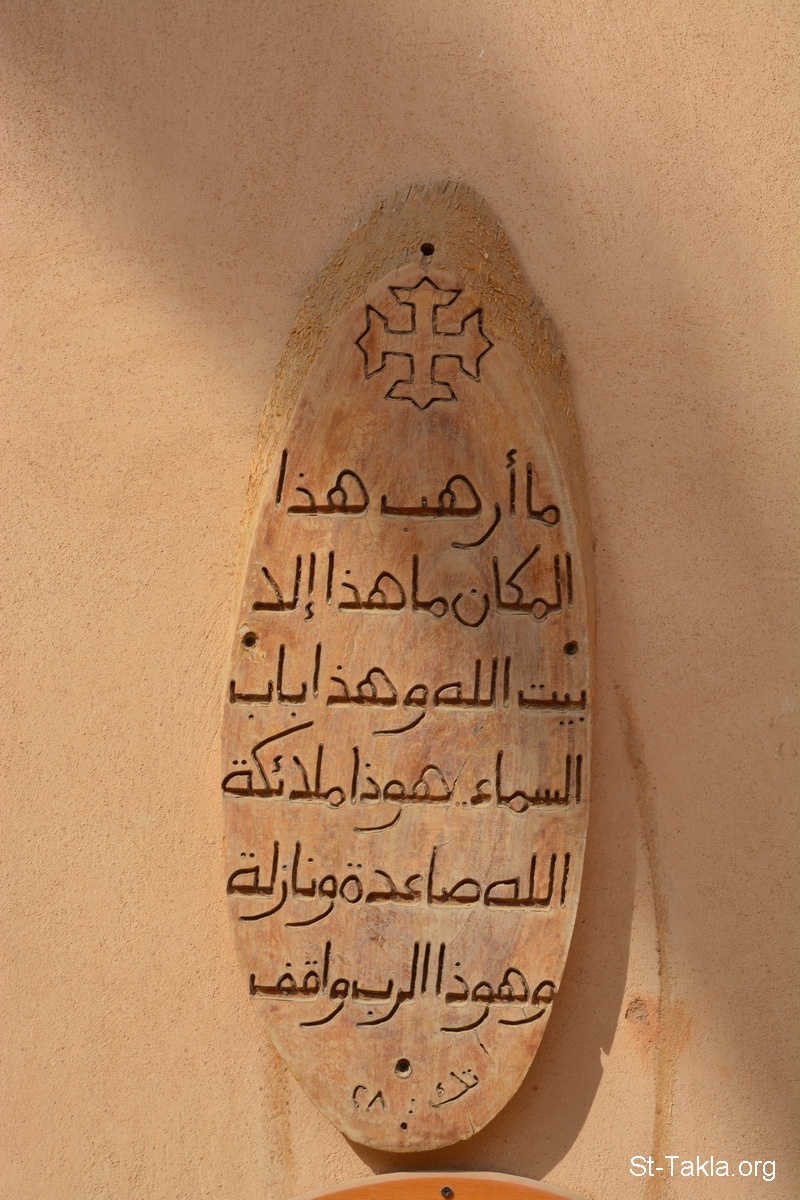 ما أرهب هذا
المكان ما هذا إلا
بيت الله وهذا باب
السماء.. هوذا ملائكة
الله صاعدة ونازلة
وهوذا الرب واقف
تك : ٢٨
St-Takla.org